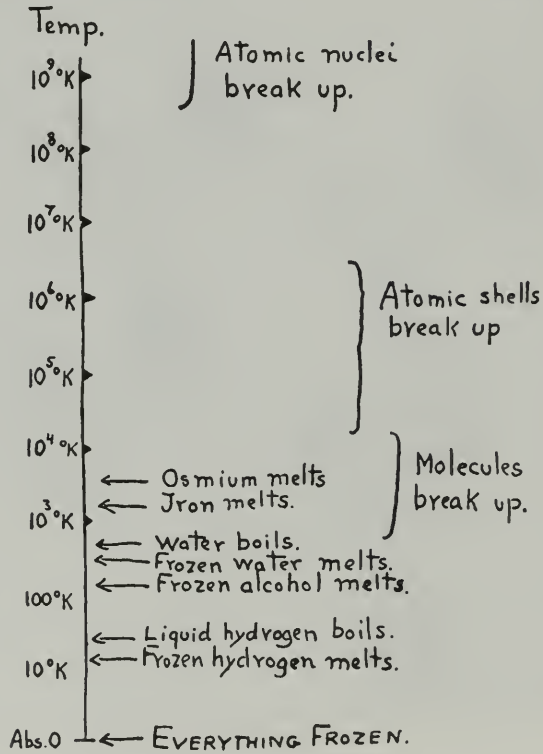 Temp.
Atomic nuclei
break up.
10⁹°K
10⁸°K
10⁷°K
10⁶°K
Atomic shells
break up
10⁵°K
10⁴°K
Molecules
break up.
Osmium melts
Iron melts.
10³°K
Water boils.
Frozen water melts.
Frozen alcohol melts.
100°K
Liquid hydrogen boils.
Frozen hydrogen melts.
10°K
Abs.0
EVERYTHING FROZEN.